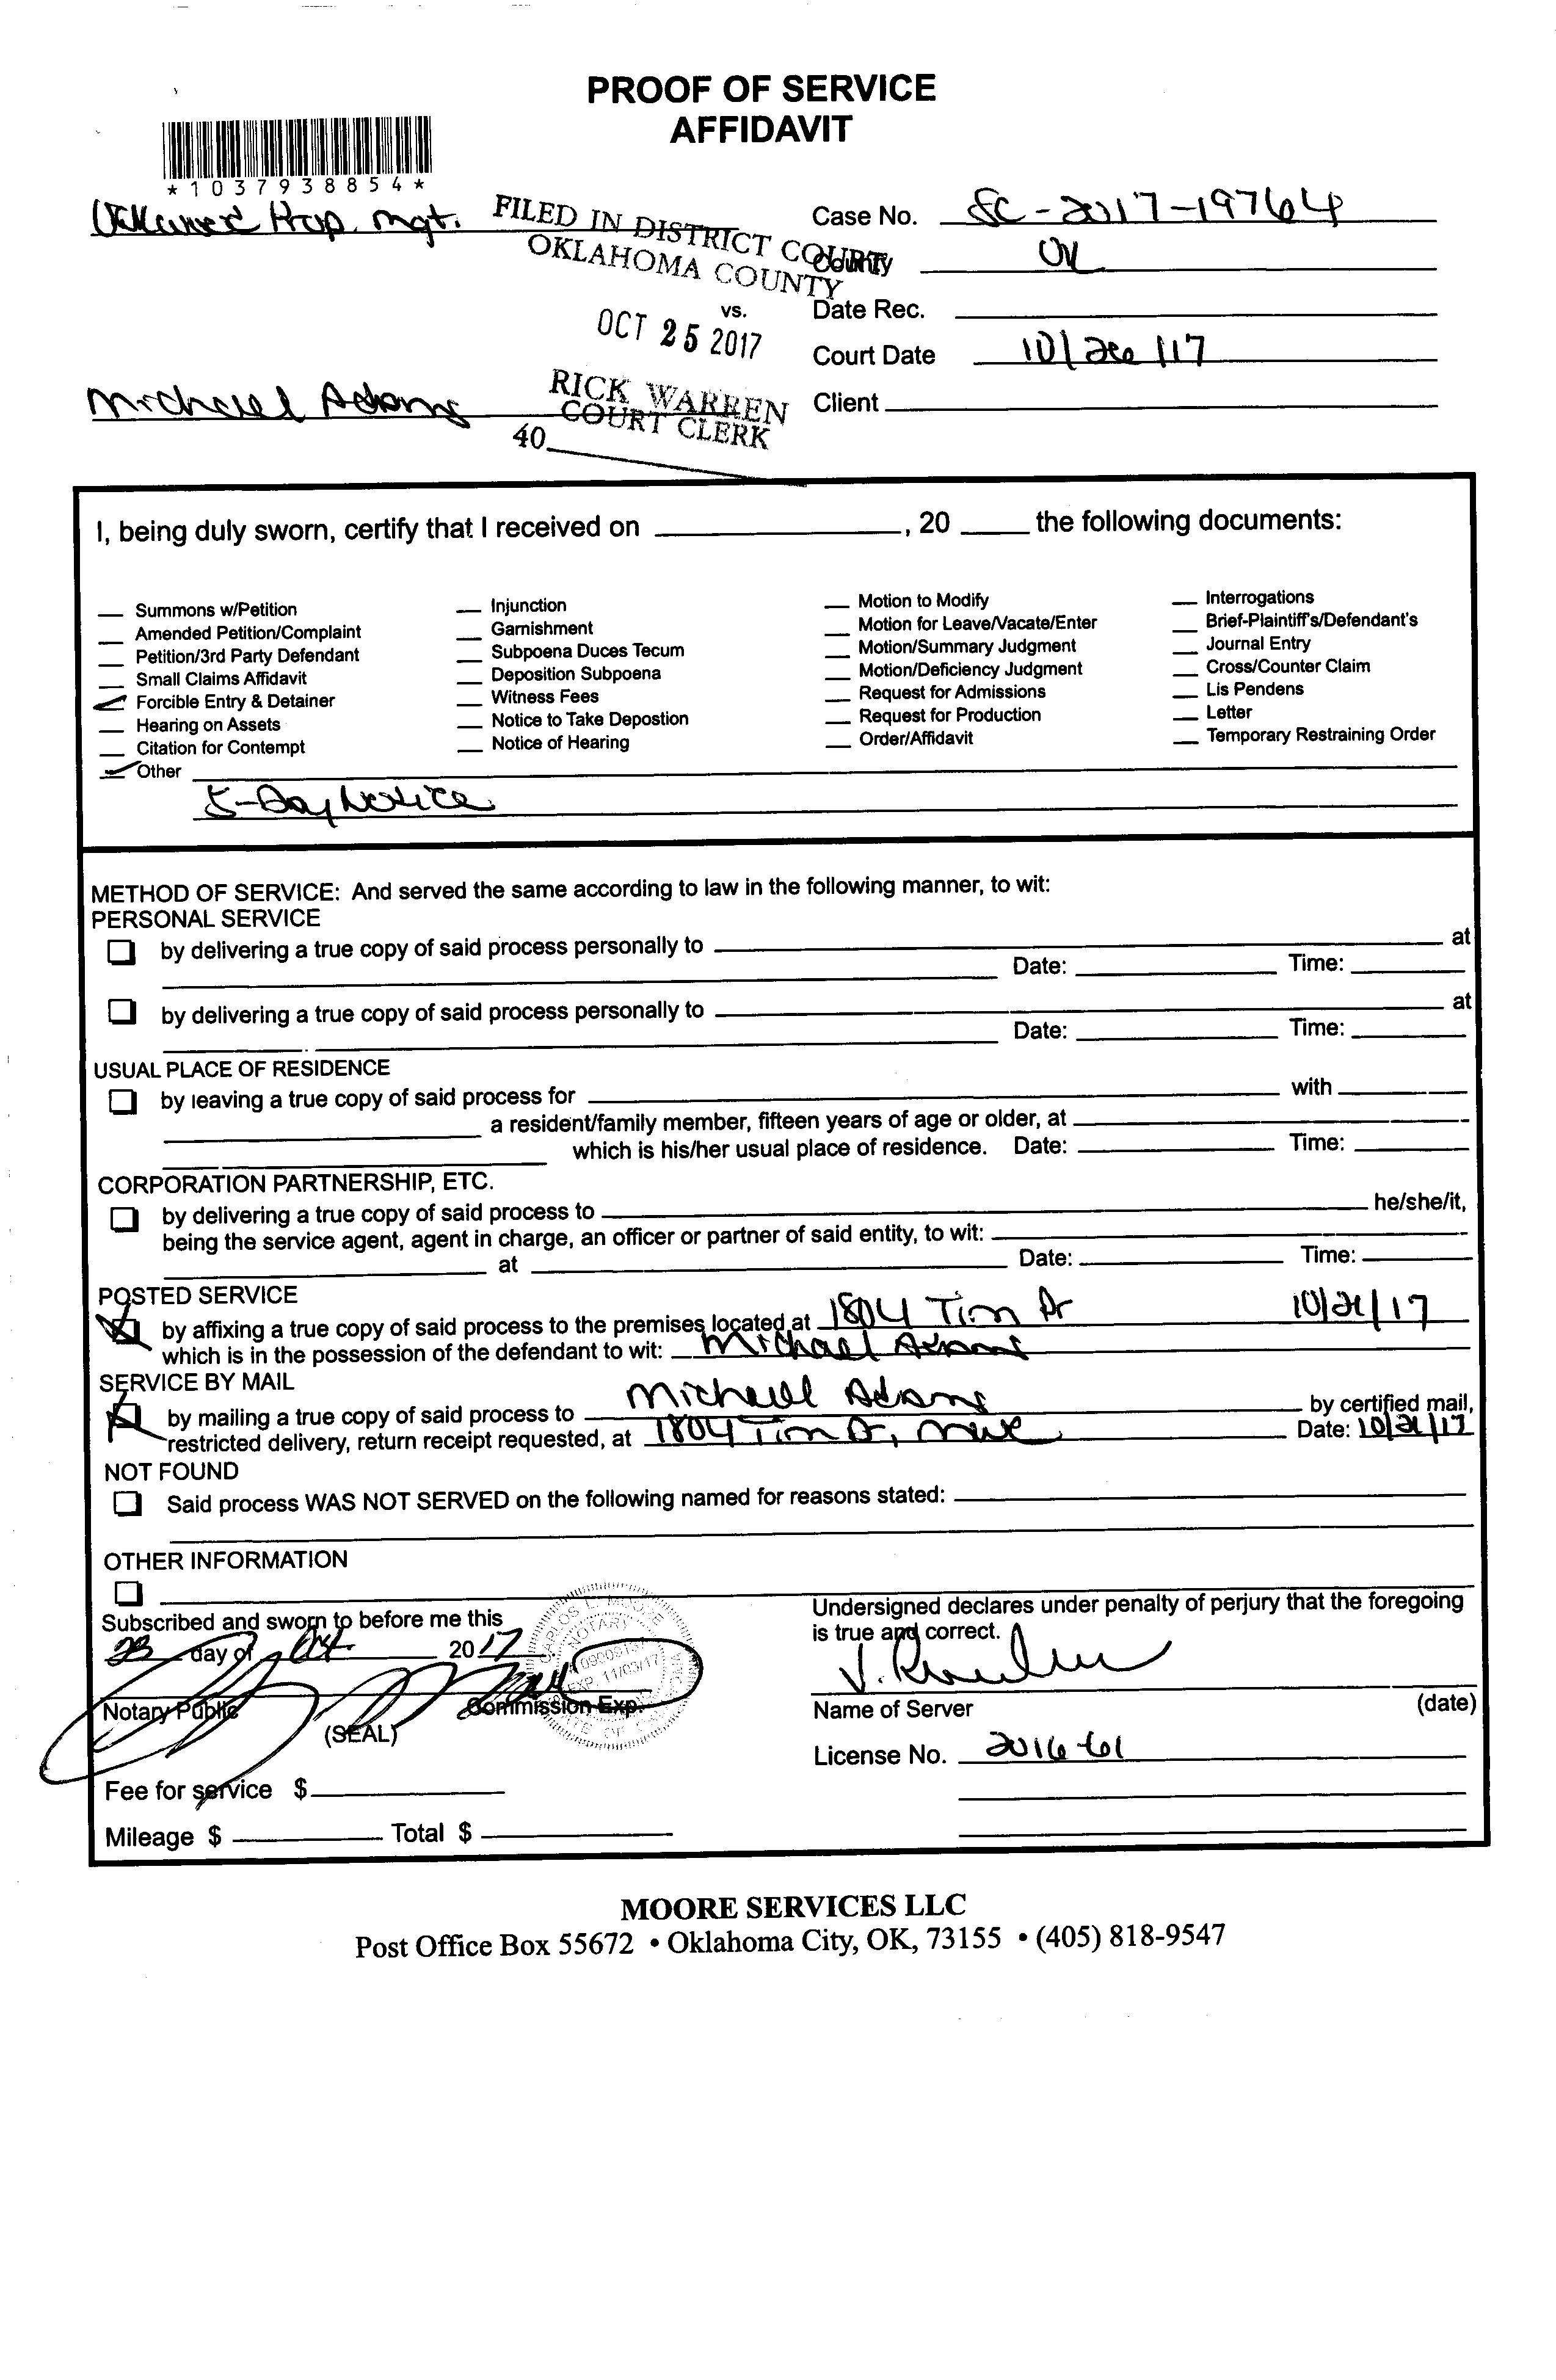 PROOF OF SERVICE
AFFIDAVIT
*1037938854*
Prop. mgt.
FILED IN DISTRICT COURT
OKLAHOMA COUNTY
OCT 25 2017
RICK WARREN
COURT CLERK
40
Case No. SC-2017-19764
County OK
vs.
Date Rec.
Court Date 10/26/17
Michael Adams
Client
I, being duly sworn, certify that I received on , 20 the following documents:
Summons w/Petition
Amended Petition/Complaint
Petition/3rd Party Defendant
Small Claims Affidavit
Forcible Entry & Detainer
Hearing on Assets
Citation for Contempt
Other
5-Day Notice
Injunction
Garnishment
Subpoena Duces Tecum
Deposition Subpoena
Witness Fees
Notice to Take Depostion
Notice of Hearing
Motion to Modify
Motion for Leave/Vacate/Enter
Motion/Summary Judgment
Motion/Deficiency Judgment
Request for Admissions
Request for Production
Order/Affidavit
Interrogations
Brief-Plaintiff's/Defendant's
Journal Entry
Cross/Counter Claim
Lis Pendens
Letter
Temporary Restraining Order
METHOD OF SERVICE: And served the same according to law in the following manner, to wit:
PERSONAL SERVICE
by delivering a true copy of said process personally to at
Date: Time:
by delivering a true copy of said process personally to at
Date: Time:
USUAL PLACE OF RESIDENCE
by leaving a true copy of said process for with
a resident/family member, fifteen years of age or older, at
which is his/her usual place of residence. Date: Time:
CORPORATION PARTNERSHIP, ETC.
by delivering a true copy of said process to he/she/it,
being the service agent, agent in charge, an officer or partner of said entity, to wit:
at Date: Time:
POSTED SERVICE
by affixing a true copy of said process to the premises located at 1804 Tim Dr 10/21/17
which is in the possession of the defendant to wit: Michael Adams
SERVICE BY MAIL
by mailing a true copy of said process to Michael Adams by certified mail,
restricted delivery, return receipt requested, at 1804 Tim Dr, MWC Date: 10/21/17
NOT FOUND
Said process WAS NOT SERVED on the following named for reasons stated:
OTHER INFORMATION
Subscribed and sworn to before me this
23 day of Oct. 2017
Notary Public
(SEAL)
Commission Exp.
CARLOS E. MOORE
NOTARY
EXP. 11/03/17
Undersigned declares under penalty of perjury that the foregoing
is true and correct.
Name of Server (date)
License No. 2016-61
Fee for service $
Mileage $ Total $
MOORE SERVICES LLC
Post Office Box 55672 • Oklahoma City, OK, 73155 • (405) 818-9547